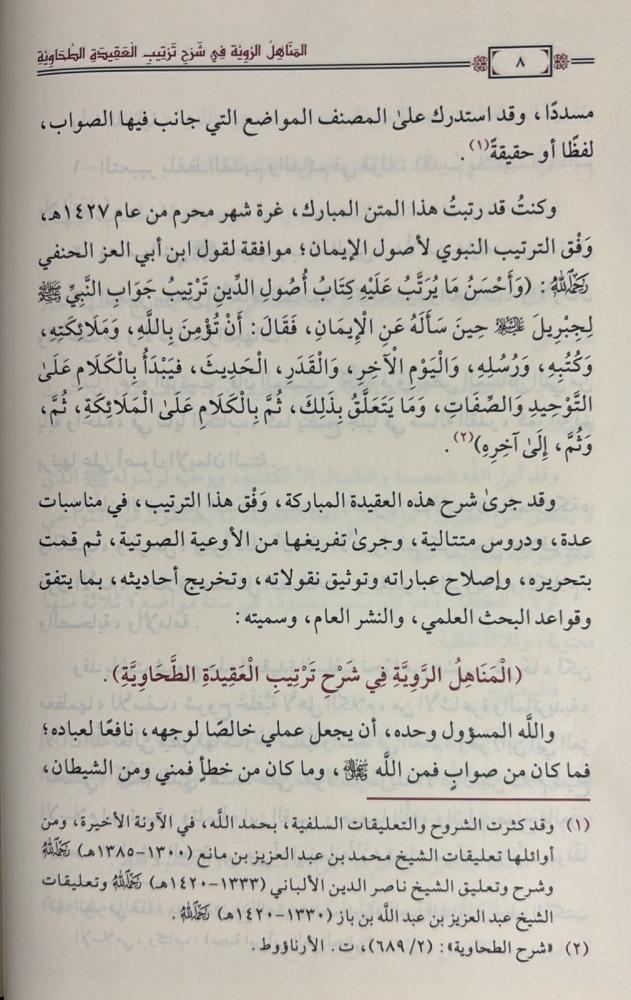 المَنَاهِلُ الرَّوِيَّة فِي شَرْحِ تَرْتِيبِ الْعَقِيدَةِ الطَّحَاوِيَّةِ
٨
مسددًا، وقد استدرك علىٰ المصنف المواضع التي جانب فيها الصواب،
لفظًا أو حقيقةً(١).
وكنتُ قد رتبتُ هذا المتن المبارك، غرة شهر محرم من عام ١٤٢٧هـ،
وَفْق الترتيب النبوي لأصول الإيمان؛ موافقة لقول ابن أبي العز الحنفي
رَحِمَهُ اللَّهُ: (وَأَحْسَنُ مَا يُرَتَّبُ عَلَيْهِ كِتَابُ أُصُولِ الدِّينِ تَرْتِيبُ جَوَابِ النَّبِيِّ ﷺ
لِجِبْرِيلَ عَلَيْهِ السَّلَامُ حِينَ سَأَلَهُ عَنِ الْإِيمَانِ، فَقَالَ: أَنْ تُؤْمِنَ بِاللَّهِ، وَمَلَائِكَتِهِ،
وَكُتُبِهِ، وَرُسُلِهِ، وَالْيَوْمِ الْآخِرِ، وَالْقَدَرِ، الْحَدِيثَ، فَيَبْدَأُ بِالْكَلَامِ عَلَىٰ
التَّوْحِيدِ وَالصِّفَاتِ، وَمَا يَتَعَلَّقُ بِذَلِكَ، ثُمَّ بِالْكَلَامِ عَلَىٰ الْمَلَائِكَةِ، ثُمَّ،
وَثُمَّ، إِلَىٰ آخِرِهِ)(٢).
وقد جرىٰ شرح هذه العقيدة المباركة، وَفْق هذا الترتيب، في مناسبات
عدة، ودروس متتالية، وجرىٰ تفريغها من الأوعية الصوتية، ثم قمت
بتحريره، وإصلاح عباراته وتوثيق نقولاته، وتخريج أحاديثه، بما يتفق
وقواعد البحث العلمي، والنشر العام، وسميته:
(الْمَنَاهِلُ الرَّوِيَّةِ فِي شَرْحِ تَرْتِيبِ الْعَقِيدَةِ الطَّحَاوِيَّةِ).
واللَّه المسؤول وحده، أن يجعل عملي خالصًا لوجهه، نافعًا لعباده؛
فما كان من صوابٍ فمن اللَّه ﷻ، وما كان من خطأٍ فمني ومن الشيطان،
(١) وقد كثرت الشروح والتعليقات السلفية، بحمد اللَّه، في الآونة الأخيرة، ومن
أوائلها تعليقات الشيخ محمد بن عبد العزيز بن مانع (١٣٠٠-١٣٨٥هـ) رَحِمَهُ اللَّهُ
وشرح وتعليق الشيخ ناصر الدين الألباني (١٣٣٣-١٤٢٠هـ) رَحِمَهُ اللَّهُ وتعليقات
الشيخ عبد العزيز بن عبد اللَّه بن باز (١٣٣٠-١٤٢٠هـ) رَحِمَهُ اللَّهُ.
(٢) «شرح الطحاوية»: (٢/ ٦٨٩)، ت. الأرناؤوط.